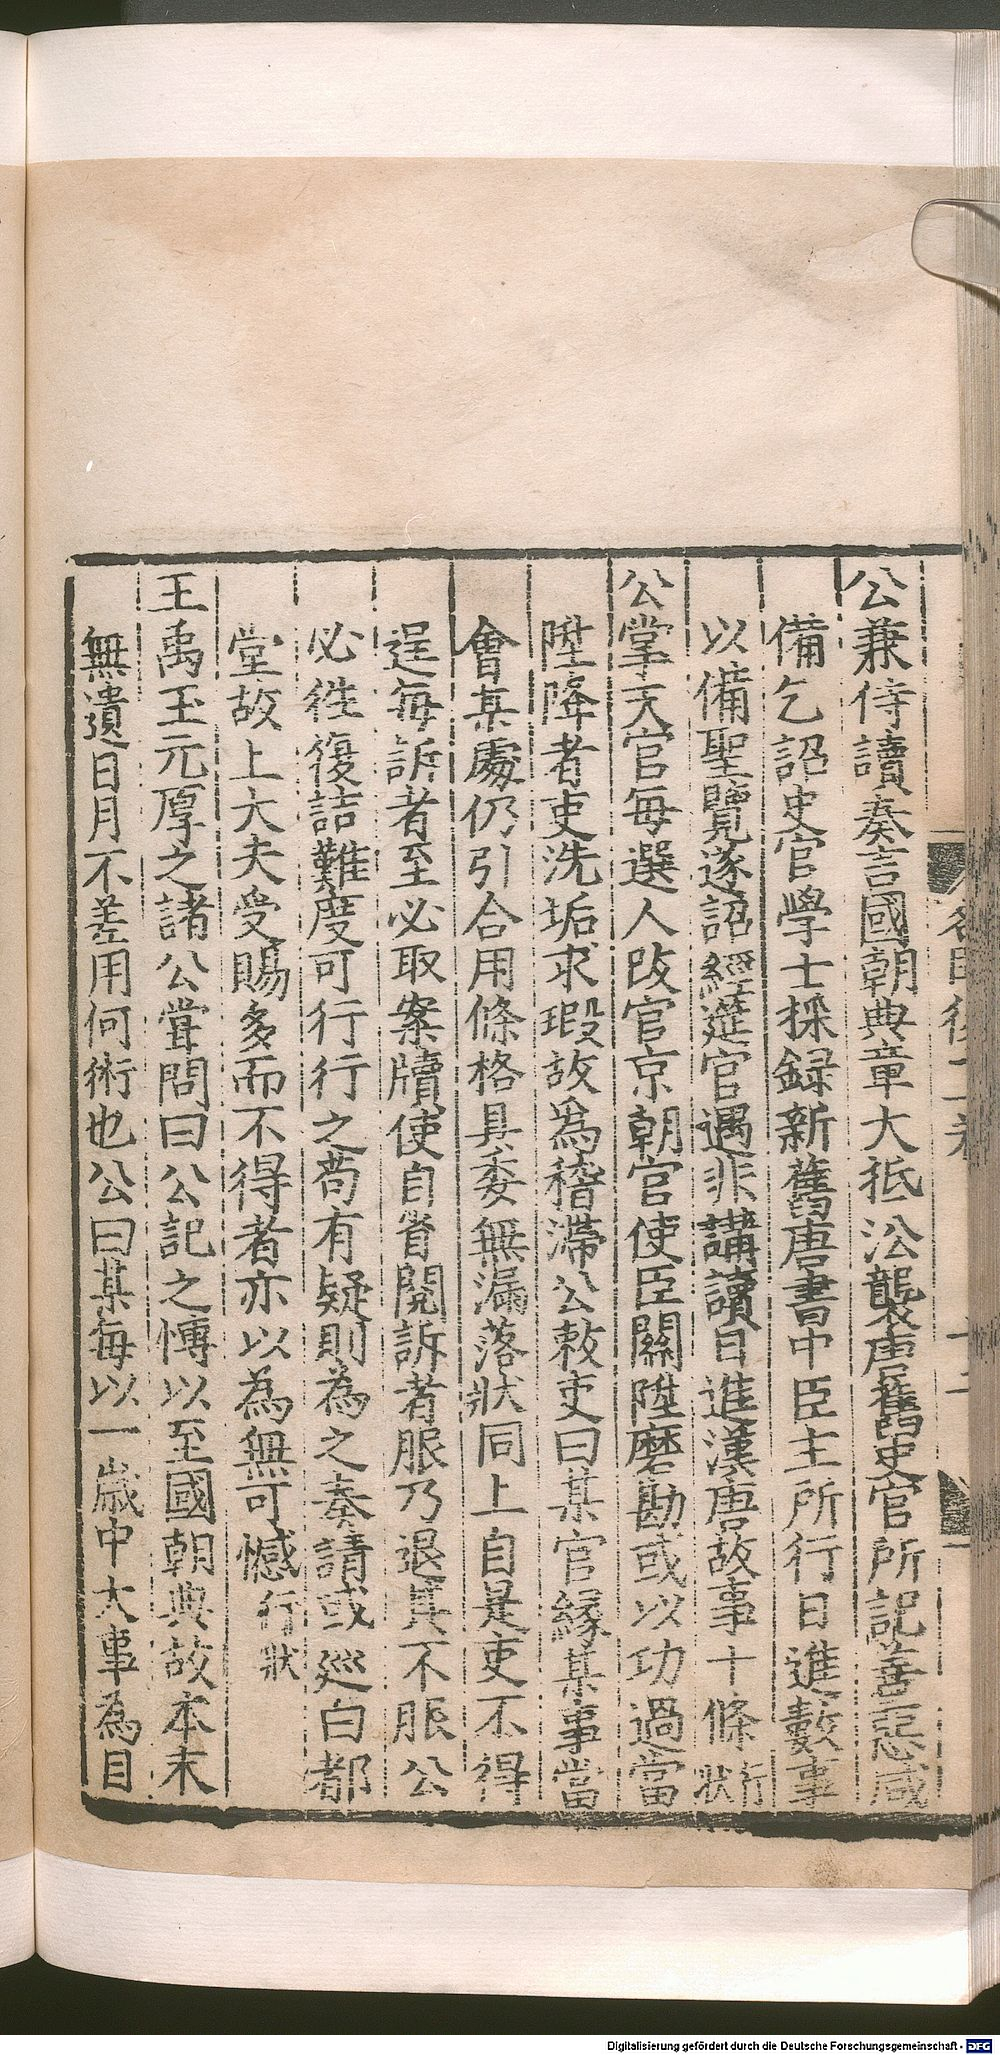 公兼侍讀奏言國朝典章大抵㳂襲唐舊史官所記善惡咸
備乞詔史官學士採録新舊唐書中臣主所行日進數事
以備聖覽遂詔經筵官遇非講讀日進漢唐故事十條行狀
公掌天官每選人改官京朝官使臣關陞磨勘或以功過當
陞降者吏洗垢求瑕故爲稽滯公敕吏曰某官緣某事當
會某處仍引合用條格具委無漏落狀同上自是吏不得
逞每訴者至必取案牘使自省閱訴者服乃退其不服公
必徃復詰難度可行行之苟有疑則為之奏請或巡白都
堂故上大夫受賜多而不得者亦以為無可憾行狀
王禹玉元厚之諸公甞問曰公記之慱以至國朝典故本末
無遺日月不差用何術也公曰某每以一歳中大事為目
Digitalisierung gefördert durch die Deutsche Forschungsgemeinschaft - DFG